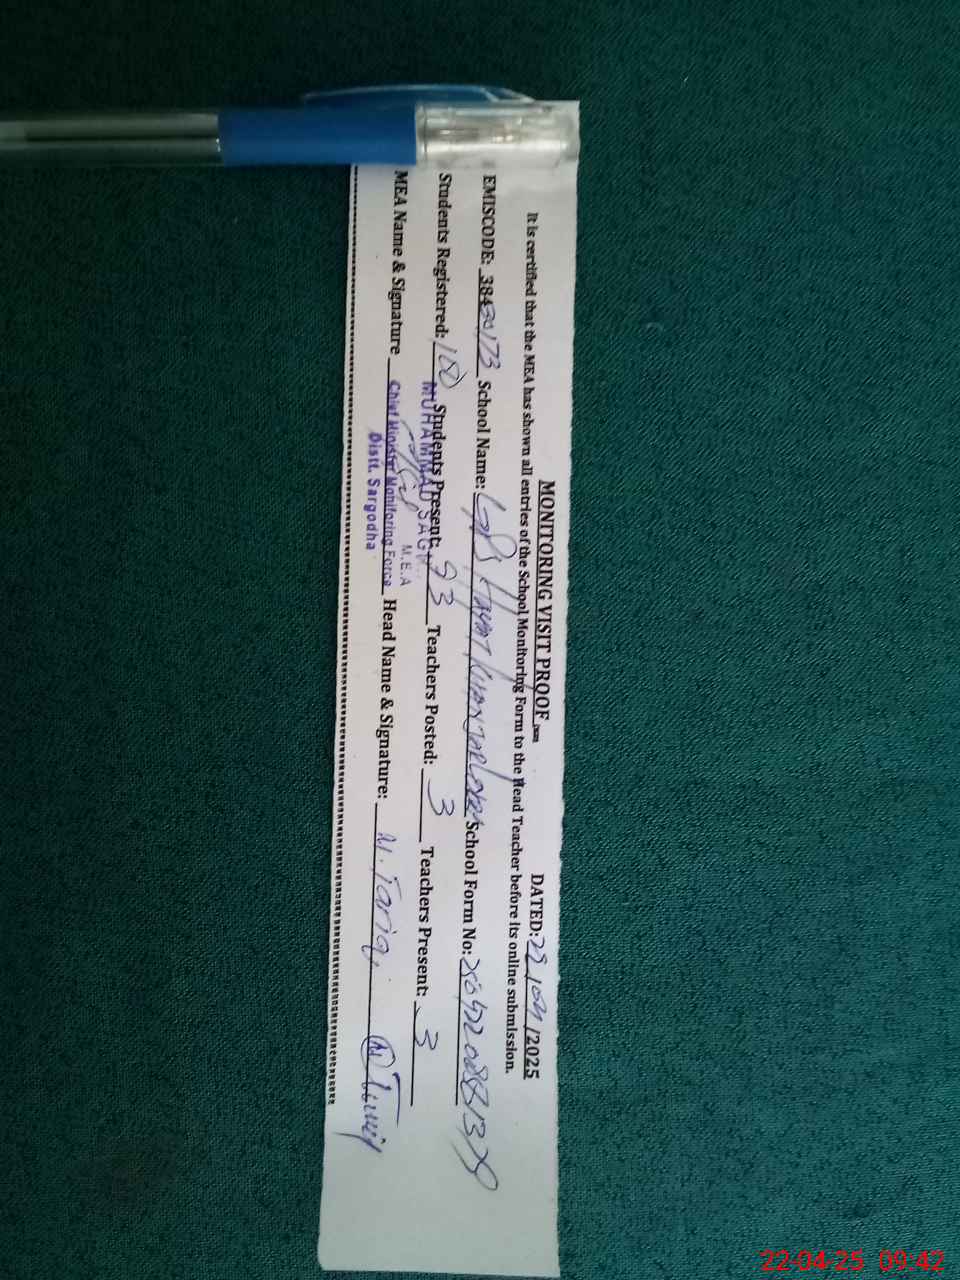 MONITORING VISIT PROOF DATED: 22/04/2025
It is certified that the MEA has shown all entries of the School Monitoring Form to the Head Teacher before its online submission.
EMISCODE: School Name: School Form No:
Students Registered: 100 Students Present: 93 Teachers Posted: 3 Teachers Present: 3
MUHAMMAD
M.E.A
MEA Name & Signature Chief Minister Monitoring Force Head Name & Signature: M. Tariq
Distt. Sargodha
22-04-25 09:42